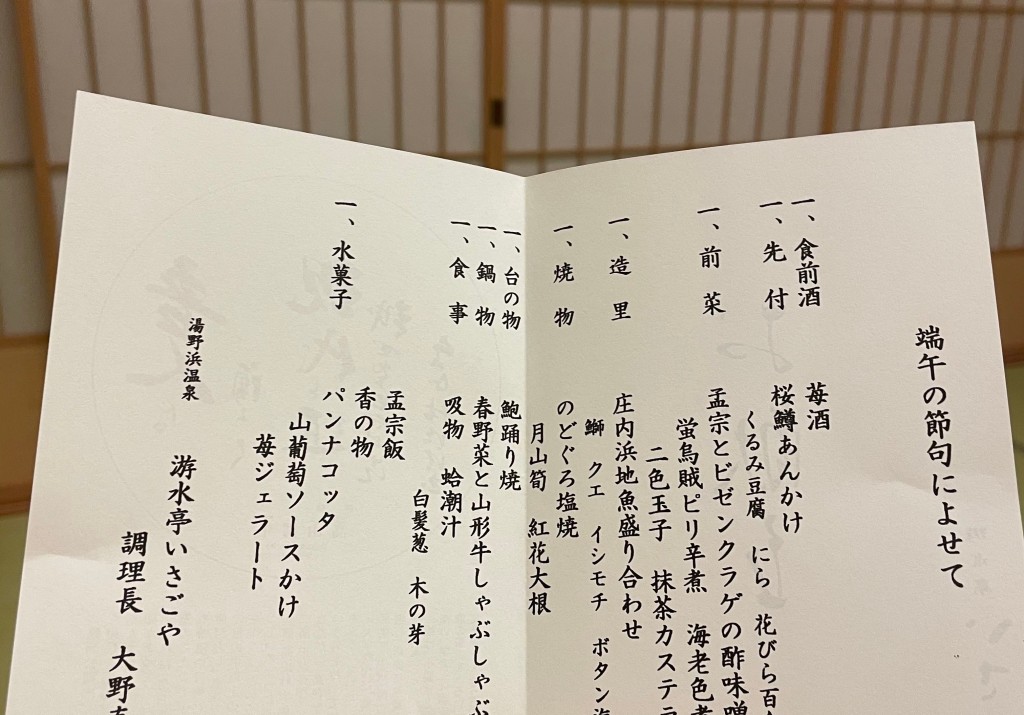 端午の節句によせて
一、食前酒 苺酒
一、先付 桜鱒あんかけ
くるみ豆腐 にら 花びら百
一、前菜 孟宗とビゼンクラゲの酢味噌
蛍烏賊ピリ辛煮 海老色煮
二色玉子 抹茶カステラ
一、造里 庄内浜地魚盛り合わせ
鰤 クエ イシモチ ボタン海
一、焼物 のどぐろ塩焼
月山筍 紅花大根
一、台の物 鮑踊り焼
一、鍋物 春野菜と山形牛しゃぶしゃぶ
一、食事 吸物 蛤潮汁
白髪葱 木の芽
孟宗飯
香の物
一、水菓子 パンナコッタ
山葡萄ソースかけ
苺ジェラート
湯野浜温泉
游水亭いさごや
調理長 大野